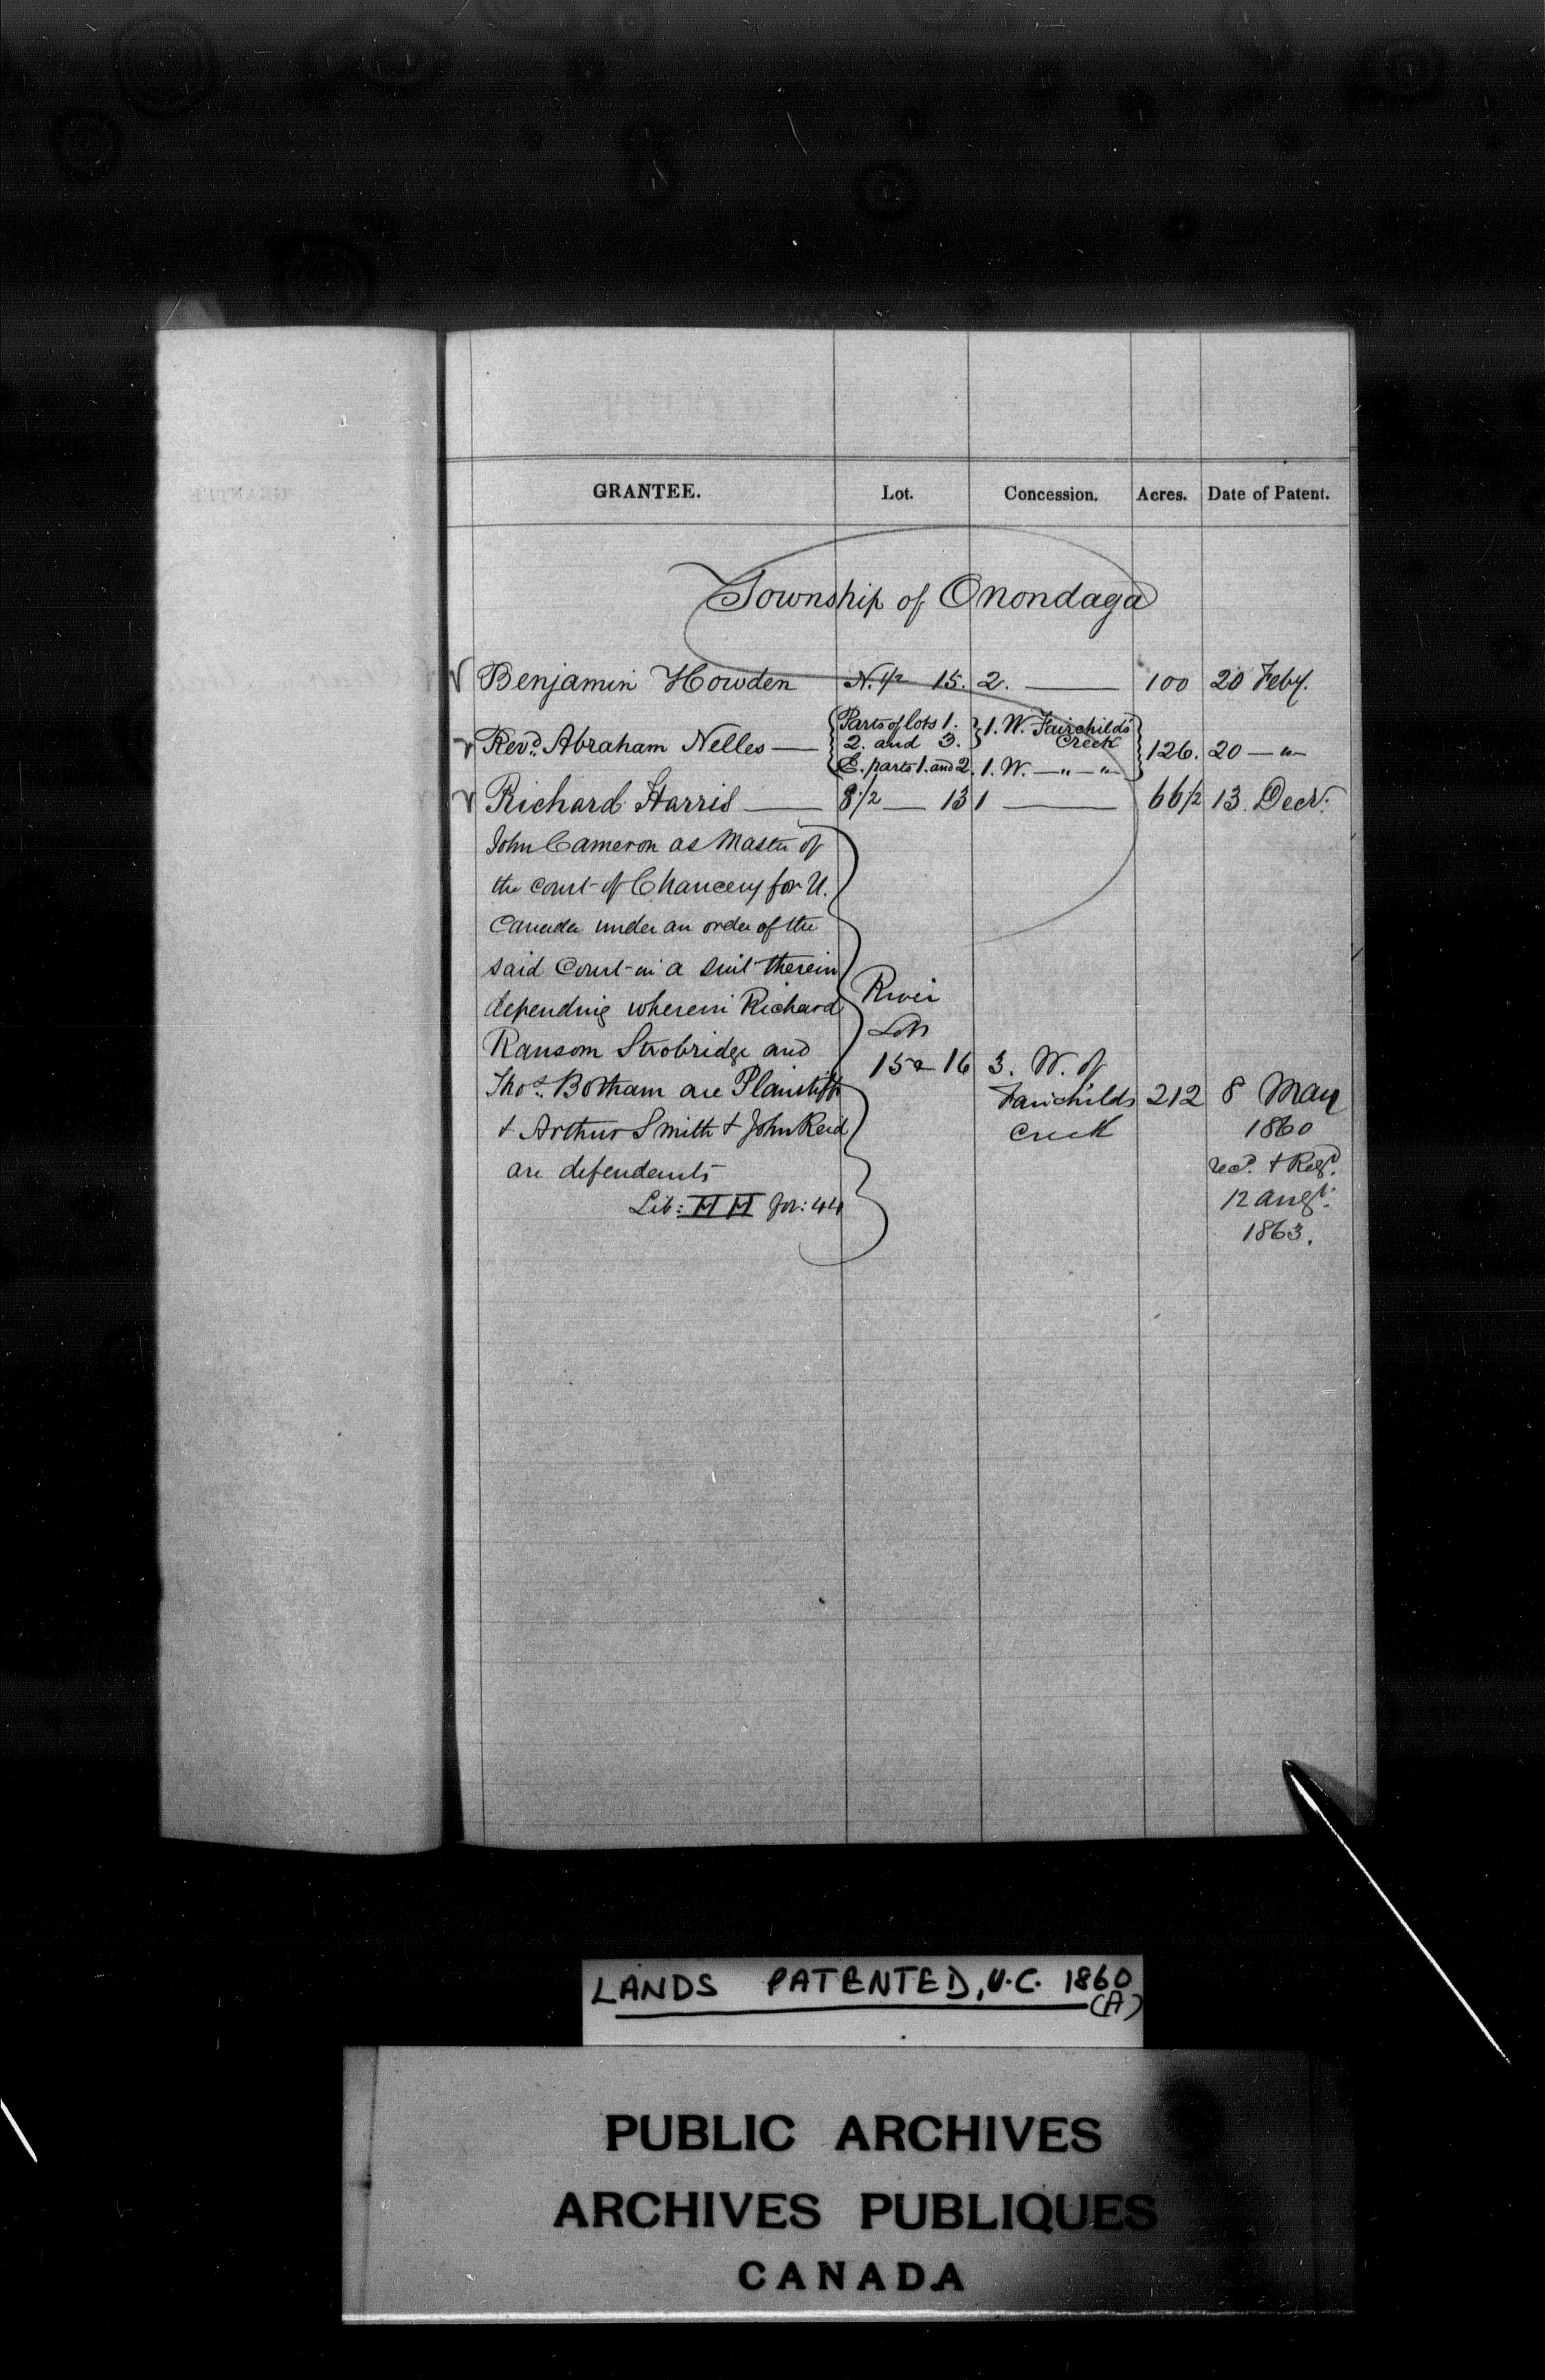 GRANTEE. Lot. Concession. Acres. Date of Patent.
Township of Onondaga
Benjamin Howden N. 1/2 15. 2. — 100 20 Feby.
Revd. Abraham Nelles — { Parts of lots 1. 2. and 3. } 1. W. Fairchild's Creek } 126. 20 — " —
E. parts 1. and 2. 1. W. — " — " —
Richard Harris — 8 1/2 — 13 1 — 66 1/2 13 Decr.
John Cameron as Master of
the Court of Chancery for U.
Canada under an order of the
said Court in a suit therein
depending wherein Richard River
Ransom Strobridge and Lots
15 & 16 3. W. of
Thos. Botham are Plaintiffs Fairchilds 212 8 May
& Arthur Smith & John Reid Creek 1860
are defendents recd. & Regd.
Lib: HH fo: 44 12 Augt.
1863.
LANDS PATENTED, U.C. 1860
(A)
PUBLIC ARCHIVES
ARCHIVES PUBLIQUES
CANADA